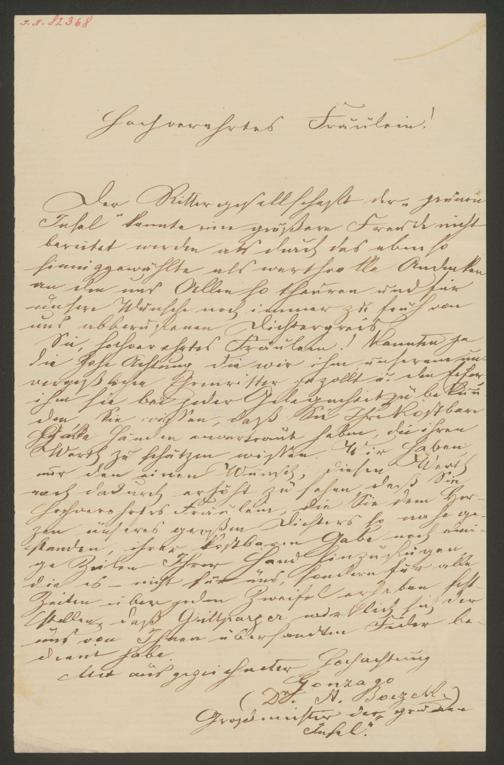 J.N. 82368
Hochverehrtes Fräulein!
Der Rittergesellschaft der „grünen
Insel" konnte eine größere Freude nicht
bereitet werden als durch das ebenso
sinniggewählte als werthvolle Andenken
an den uns Allen so theuren und für
unsere Wünsche noch immer zu früh von
uns abberufenen Dichtergreis.
Sie, hochverehrtes Fräulein! kannten ja
die hohe Achtung die wir ihm unserem un
vergeßlichen Ehrenritter gezollt u. den Eifer
ihm sie bei jeder Gelegenheit zu bekun
den. Sie wissen, daß Sie Ihre kostbare
Händen anvertraut haben, die ihren
Werth zu schätzen wissen. Wir haben
nur den einen Wunsch, diesen Werth
noch dadurch erhöht zu sehen, daß Sie
hochverehrtes Fräulein, die Sie dem Her-
zen unseres großen Dichters so nahe ge-
standen, ihrer kostbaren Gabe noch eini-
ge Zeilen Ihrer Hand hinzufügen,
die es nicht für uns, sondern für alle
Zeiten über jeden Zweifel erhaben fest
stellen, daß Grillparzer wirklich sich der
uns von Ihnen übersandten Feder be-
dient habe.
Mit ausgezeichneter Hochachtung
Gonzago
(Dr. A. Boczek)
Großmeister der „grünen
Insel".